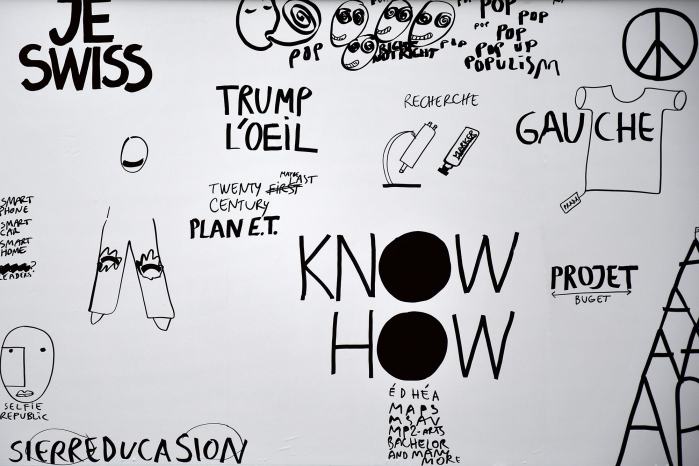 JE
SWISS
POP
RICHE
NOT RICHT
POP
POP
POP
POP
POP UP
POPULISM
TRUMP
L'OEIL
RECHERCHE
MARKER
GAUCHE
PRADA
TWENTY FIRST
MAYBE LAST
CENTURY
PLAN E.T.
SMART
PHONE
SMART
CAR
SMART
HOME
?
LEADERS
KNOW
HOW
PROJET
BUGET
SELFIE
REPUBLIC
ÉDHÉA
MAPS
MSAV
MP2-ARTS
BACHELOR
AND MANY
MORE
SIERREDUCASION
A
AA
AA
AR